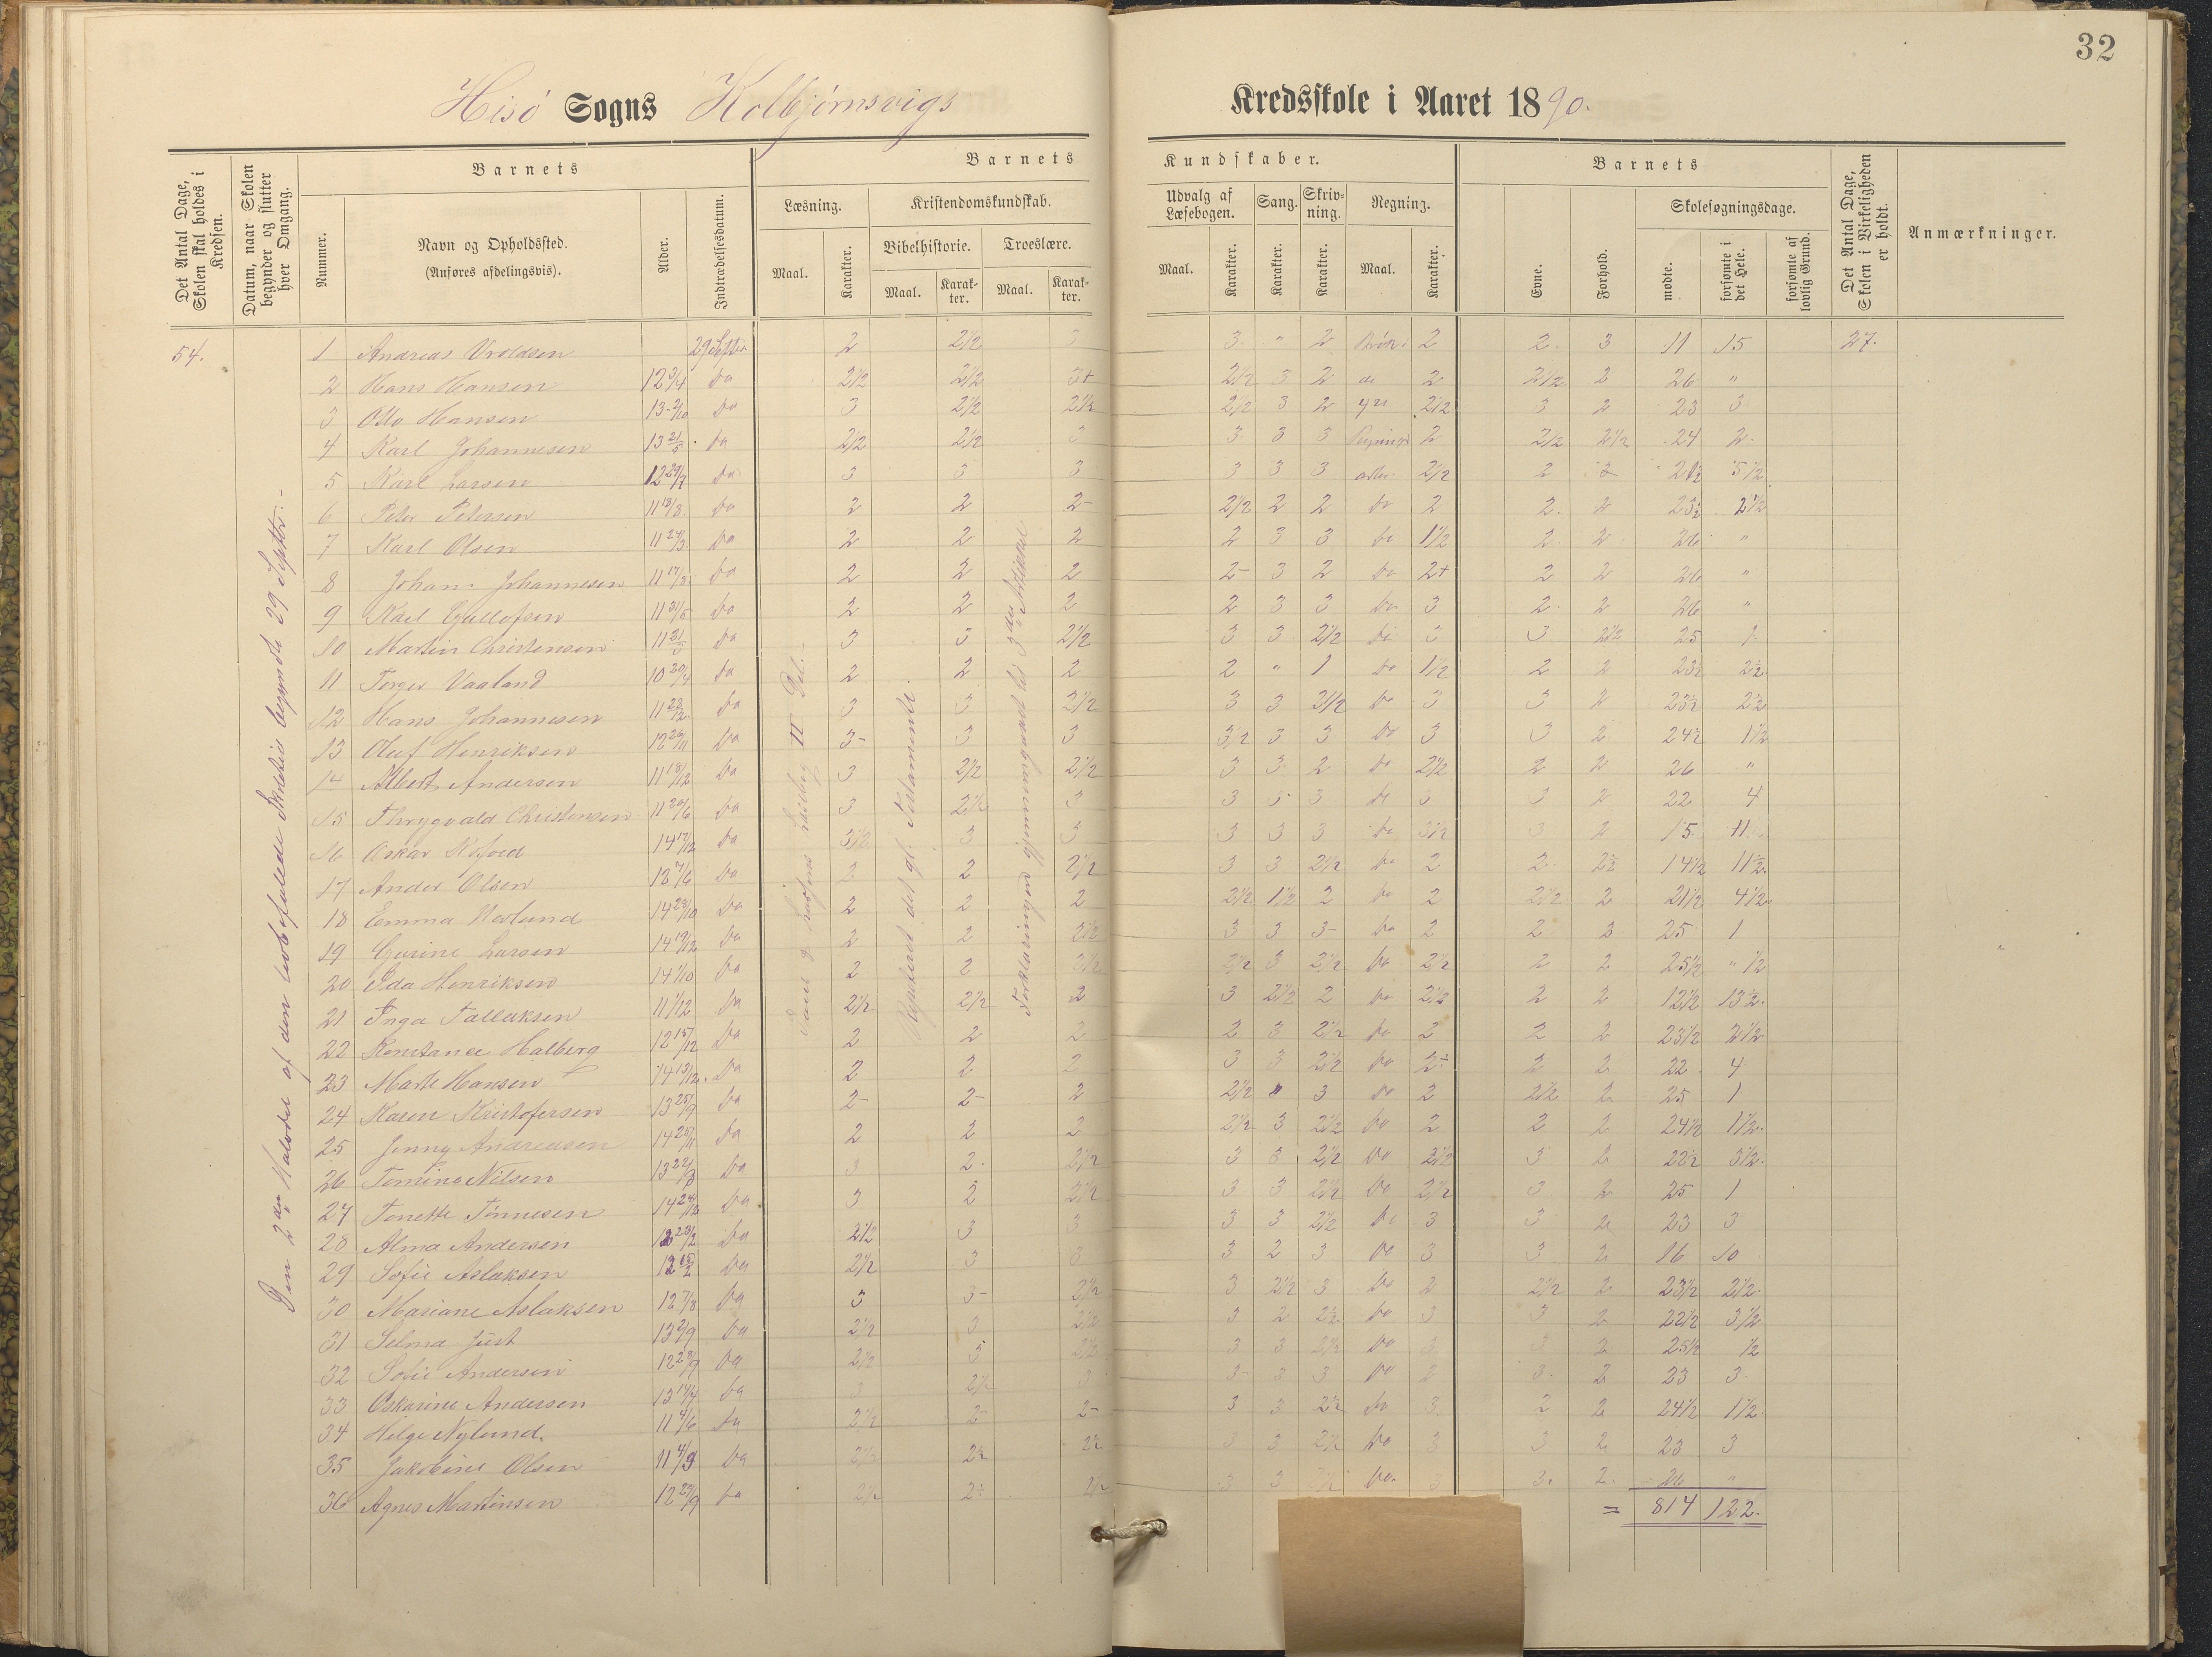 32
Hisö Sogns Kolbjörnsvigs Kredsskole i Aaret 1890.
Det Antal Dage, Skolen skal holdes i Kredsen.
Datum, naar Skolen begynder og slutter hver Omgang.
Barnets
Nummer.
Navn og Opholdssted.
(Anføres afdelingsvis).
Alder.
Indtrædelsesdatum.
Barnets Kundskaber.
Læsning.
Maal.
Karakter.
Kristendomskundskab.
Bibelhistorie.
Maal.
Karakter.
Troeslære.
Maal.
Karakter.
Udvalg af Læsebogen.
Maal.
Karakter.
Sang.
Karakter.
Skrivning.
Karakter.
Regning.
Maal.
Karakter.
Barnets
Evne.
Forhold.
Skolesøgningsdage.
mødte.
forsømte i det Hele.
forsømte af lovlig Grund.
Det Antal Dage, Skolen i Virkeligheden er holdt.
Anmærkninger.
54.
1 Andreas Vroldsen 29 Septbr 2 2½ 3 3 " 2 2 2 3 11 15 27.
2 Hans Hansen 12 3/4 Do 2½ 2½ 3+ 2½ 3 2 2 2½ 2 26 "
3 Otto Hansen Do 3 2½ 2½ 2½ 3 2 2½ 3 2 23 3
4 Karl Johannesen Do 2½ 2½ 3 3 3 3 2 2½ 2½ 24 2
5 Karl Larsen Do 3 3 3 3 3 3 2½ 2 5½
6 Peter Petersen Do 2 2 2- 2½ 2 2 Do 2 2 2 23½ 2½
7 Karl Olsen Do 2 2 2 2 3 3 Do 1½ 2 2 26 "
8 Johan Johannesen Do 2 2 2 2- 3 2 Do 2+ 2 2 26 "
9 Karl Gullofsen Do 2 2 2 2 3 3 Do 3 2 2 26 "
10 Martin Christensen Do 3 3 2½ 3 3 2½ Do 3 3 2½ 25 1
11 Torger Vaaland Do 2 2 2 2 " 1 Do 1½ 2 2 23½ 2½
12 Hans Johannesen Do 3 3 2½ 3 3 3½ Do 3 3 2 23½ 2½
13 Oluf Henriksen Do 3- 3 3 3½ 3 3 Do 3 3 2 24½ 1½
14 Albert Andersen 11 18/12 Do 3 2½ 2½ 3 3 2 Do 2½ 2 2 26 "
15 Thrygvald Christensen 11 20/6 Do 3 2½ 3 3 3 3 Do 3 3 2 22 4
16 Oskar 14 17/12 Do 3½ 3 3 3 3 3 Do 3½ 3 2 15 11
17 Ander Olsen Do 2 2 2½ 3 3 2½ Do 2 2 2½ 14½ 11½
18 Emma Do 2 2 2 2½ 1½ 2 Do 2 2½ 2 21½ 4½
19 Gurine Larsen Do 2 2 2½ 3 3 3- Do 2 2 3 25 1
20 Ida Henriksen Do 2 2 2½ 2½ 3 2½ Do 2½ 2 2 25½ " ½
21 Inga Tallaksen Do 2½ 2½ 2 3 2½ 2 Do 2½ 2 2 12½ 13½
22 Konstance Halberg 12 15/12 Do 2 2 2 2 3 2½ Do 2 2 2 23½ 2½
23 Marte Hansen 14 13/12 Do 2 2 2 3 3 2½ Do 2 2 22 4
24 Karen Kristofersen 13 25/9 Do 2- 2- 2 2½ " 3 Do 2 2½ 2 25 1
25 Jenny Andreasen 14 25/11 Do 2 2 2 2½ 3 2½ Do 2 2 2 24½ 1½
26 Tomine Nilsen Do 3 2 2½ 3 3 2½ Do 2½ 3 2 22½ 3½
27 Tonette Tönnesen Do 3 2 2½ 3 3 2½ Do 2½ 3 2 25 1
28 Alma Andersen Do 2½ 3 3 3 3 2½ Do 3 3 2 23 3
29 Sofie Aslaksen Do 2½ 3 3 3 2 3 Do 3 3 2 16 10
30 Mariane Aslaksen 12 7/8 Do 3 3- 2½ 3 2½ 3 Do 2 2½ 2 23½ 2½
31 Selma Just Do 2½ 3 2½ 3 2 2½ Do 3 3 2 22½ 3½
32 Sofie Andersen Do 2½ 3 2½ 3 3 2½ Do 3 3 2 25½ ½
33 Oskarine Andersen Do 3 2½ 3 3- 3 3 Do 3. 2 23 3
34 Helge Nylund. 11 4/6 Do 2½ 2- 2- 3 3 2½ Do 3 2 2 24½ 1½
35 Jakobine Olsen 11 4/9 Do 2½ 2½ 2½ 3 3 2½ Do 3 3 2 23 3
36 Agnes Martinsen Do 2½ 2½ 3 3 2½ Do. 3 3. 2. 26 "
= 814 122.
Den 2den Halvdel af den lovbefalede Skoletid begyndte 29 Septbr.-
Læsebog II Del.-
Repeteret det gl. Testamente.
Forklaringen gjennemgaaet til 3die Artikel